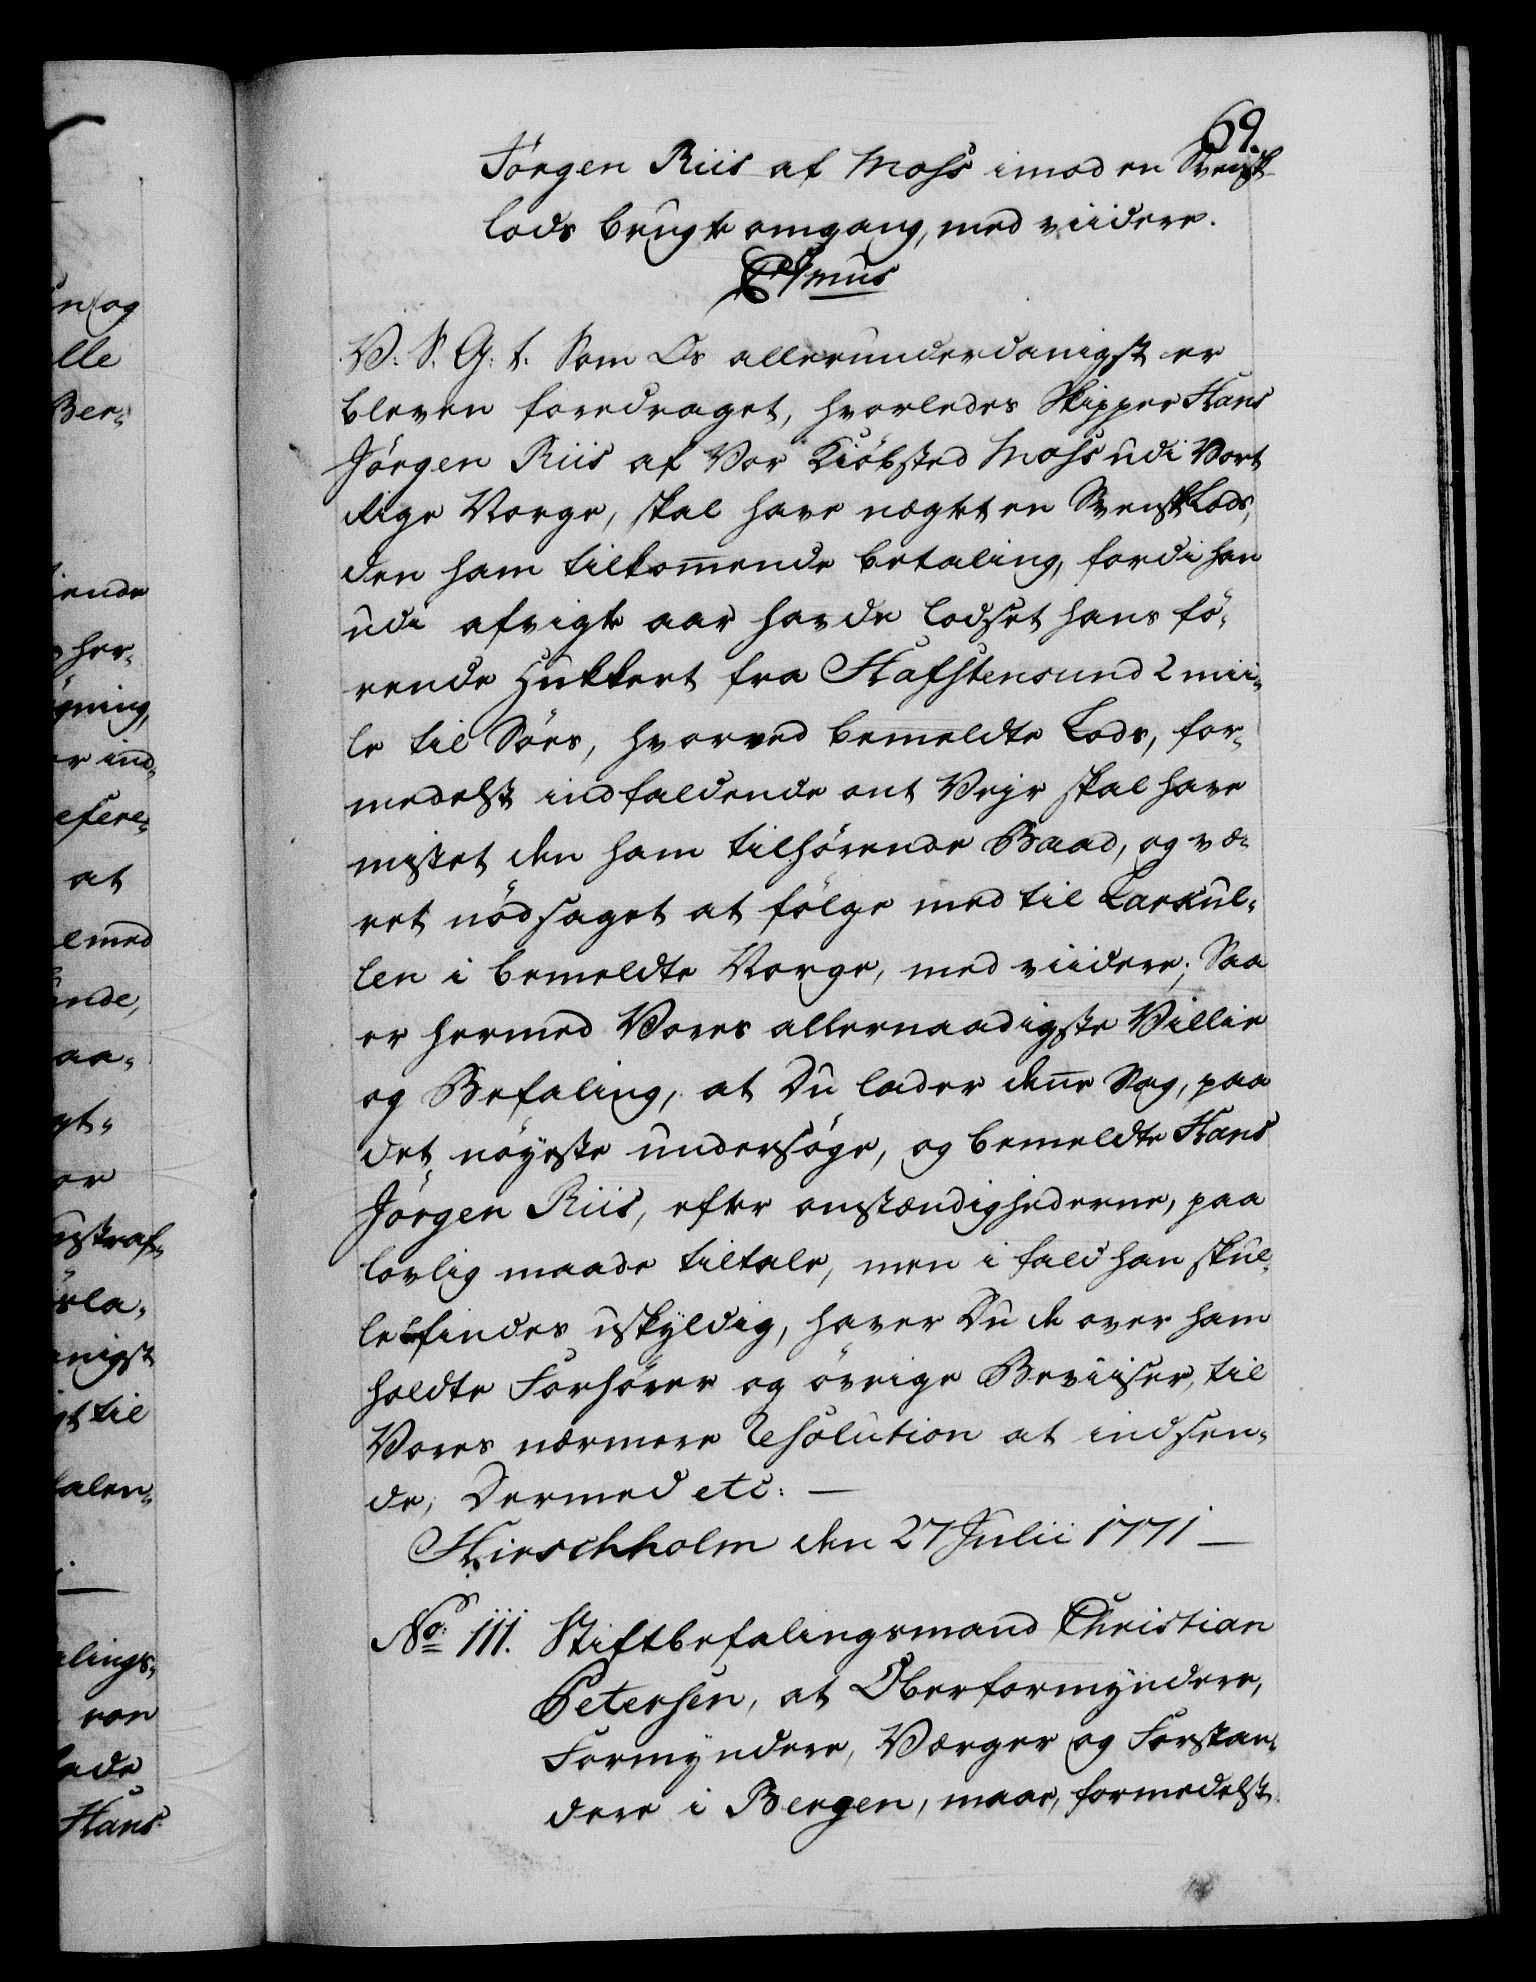 69.
Jörgen Riis af Moss imod en Svensk
Lods brugte omgang, med viidere.
V. S. G. t. Som Os allerunderdanigst er
bleven foredraget, hvorledes Skipper Hans
Jörgen Riis af Vor Kiöbsted Moss udi Vort
Rige Norge, skal have nægtet en Svensk Lods,
den ham tilkom̄ende betaling, fordi han
udi afvigte aar havde lodset hans fö-
rende Hukkert fra Hafstensund 2 mii-
le til Söes, hvorved bemeldte Lods, for-
medelst indfaldende ont Vejr skal have
mistet den ham tilhörende Baad, og væ-
ret nödsaget at fölge med til Larkul-
len i bemeldte Norge, med viidere; Saa
er hermed Vores allernaadigste Villie
og Befaling, at Du lader den̄e Sag, paa
det nöyeste undersöge, og bemeldte Hans
Jörgen Riis, efter omstændighederne, paa
lovlig maade tiltale, men i fald han skul-
le befindes uskyldig, haver Du de over ham
holdte Forhörer og övrige Beviiser, til
Vores nærmere Resolution at indsen-
de, Dermed etc: —
Hirschholm den 27 Julii 1771 —
No: 111. Stiftbefalingsmand Christian
Petersen, at Oberformyndere,
Formyndere, Værger og Forstan-
dere i Bergen, maae, formedelst
n og
lle
Ber-
ende
her-
gning,
r ind-
efere-
at
el med
ende,
aa-
gt-
or
nstraf-
rla-
anigst
gt til
falen-
alings-
von
lade
Hans